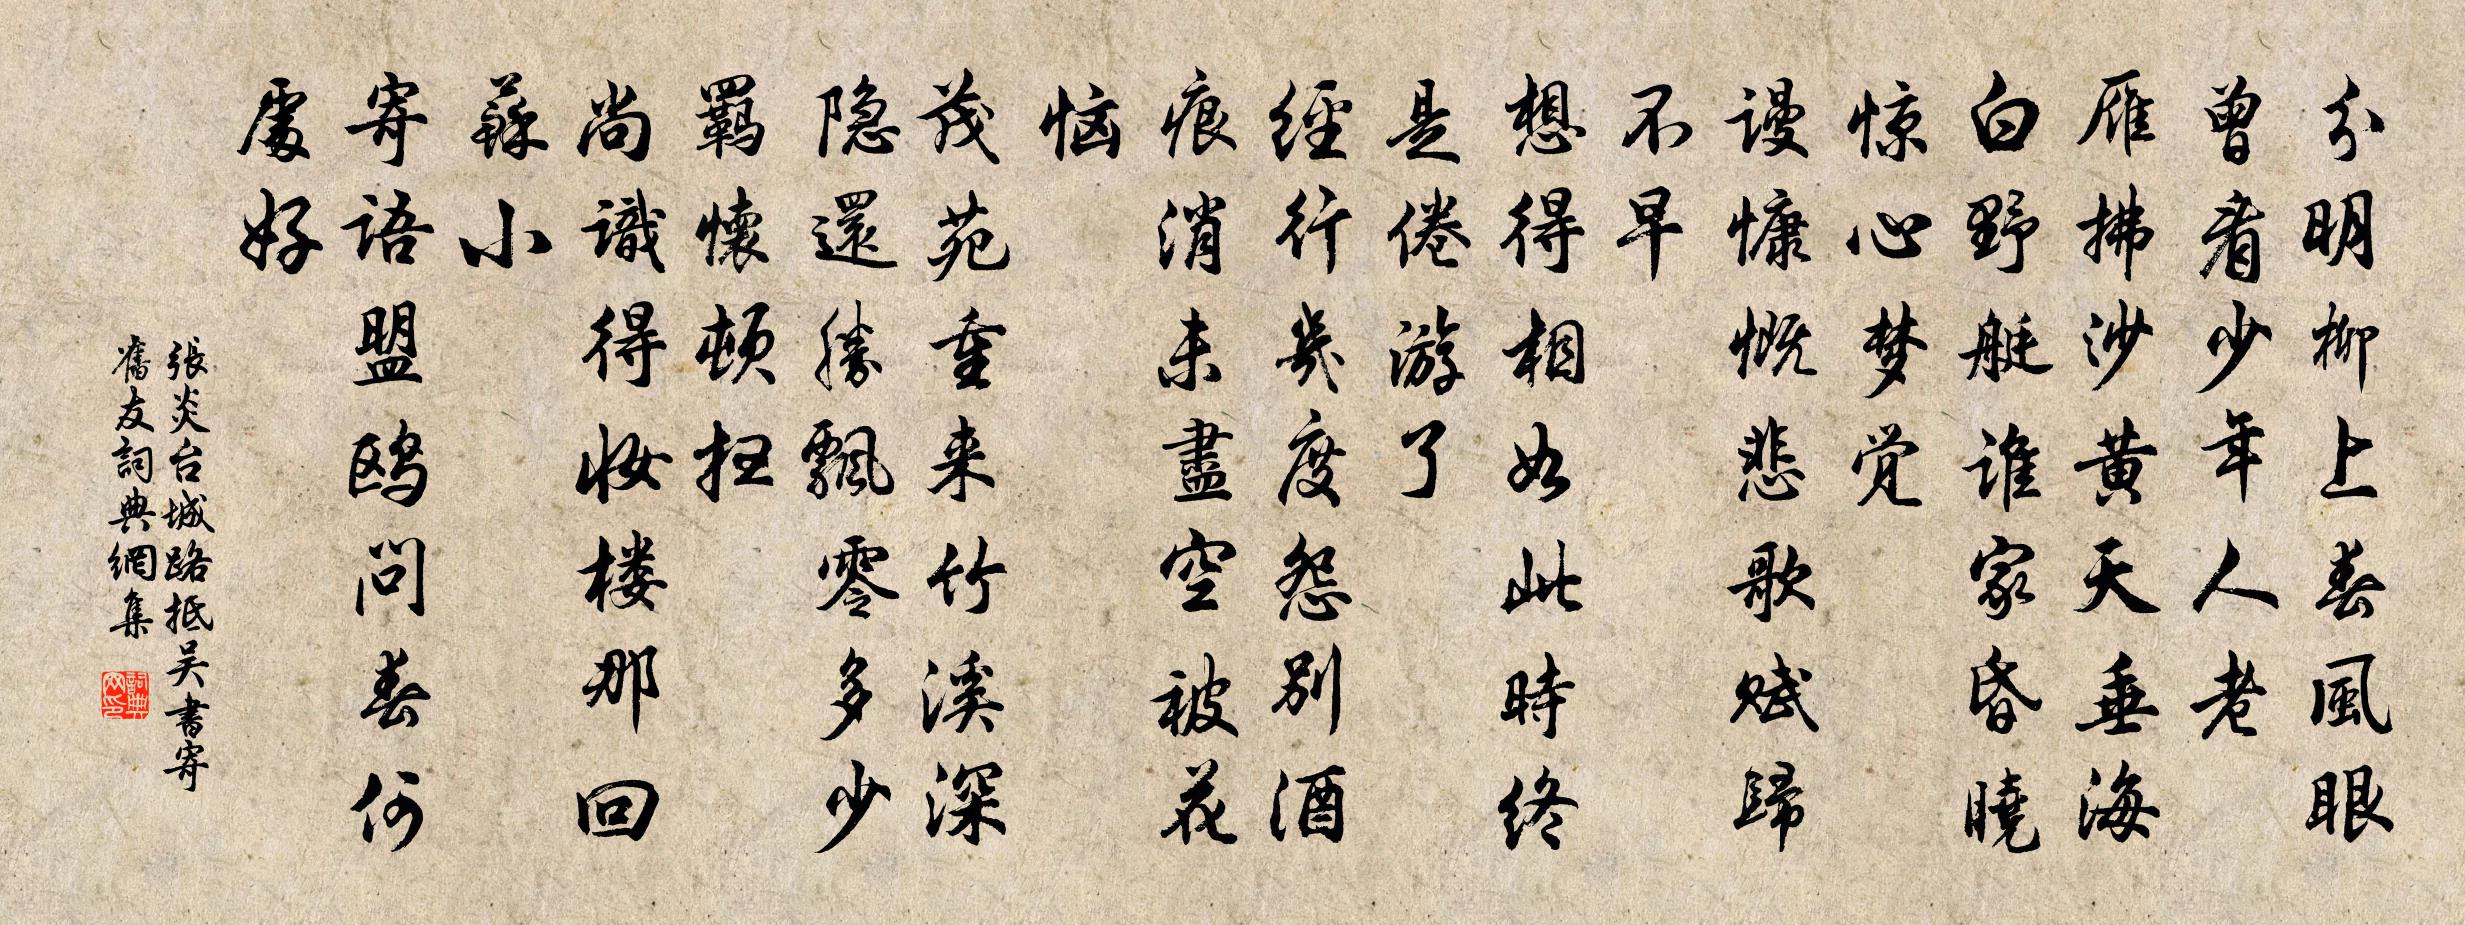 分明柳上春風眼
曾看少年人老
雁拂沙黄天垂海
白野艇谁家昏曉
惊心梦觉
谩慷慨悲歌赋歸
不早
想得相如此時終
是倦游了
經行幾度怨别酒
痕消未盡空被花
恼
茂苑重来竹溪深
隐還勝飄零多少
羈懷頓扫
尚識得妆楼那回
蘇小
寄语盟鸥问春何
處好
張炎台城路抵吴書寄
舊友詞典網集
詞典网印